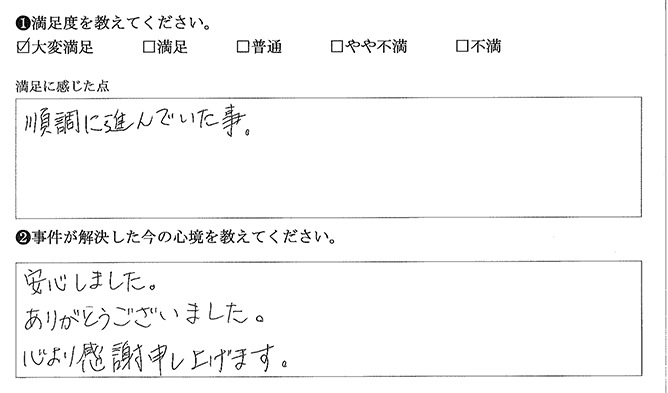 ❶満足度を教えてください。
☑大変満足 □満足 □普通 □やや不満 □不満
満足に感じた点
順調に進んでいた事。
❷事件が解決した今の心境を教えてください。
安心しました。
ありがとうございました。
心より感謝申し上げます。